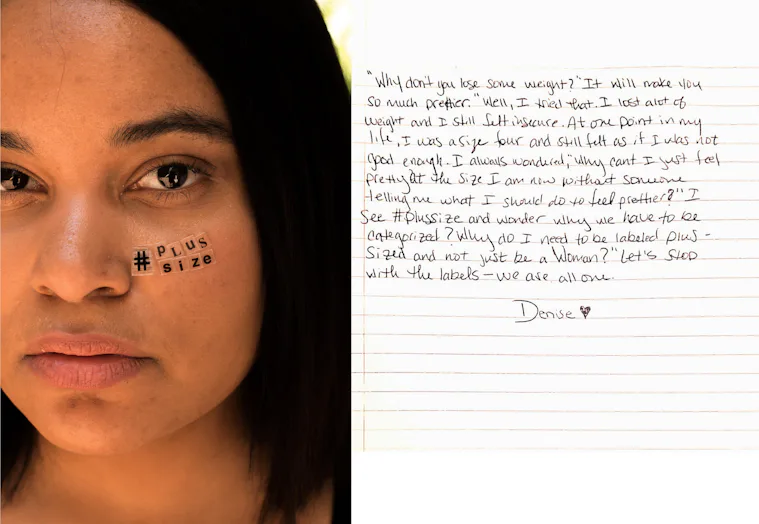 # PLUS
size
"Why don't you lose some weight?" It will make you
so much prettier." Well, I tried that. I lost alot of
weight and I still felt insecure. At one point in my
life, I was a size four and still felt as if I was not
good enough. I always wondered, "Why cant I just feel
pretty at the size I am now without someone
telling me what I should do to feel prettier?" I
see #plussize and wonder why we have to be
categorized? Why do I need to be labeled plus-
sized and not just be a Woman?" Let's stop
with the labels - we are all one.
Denise ♥